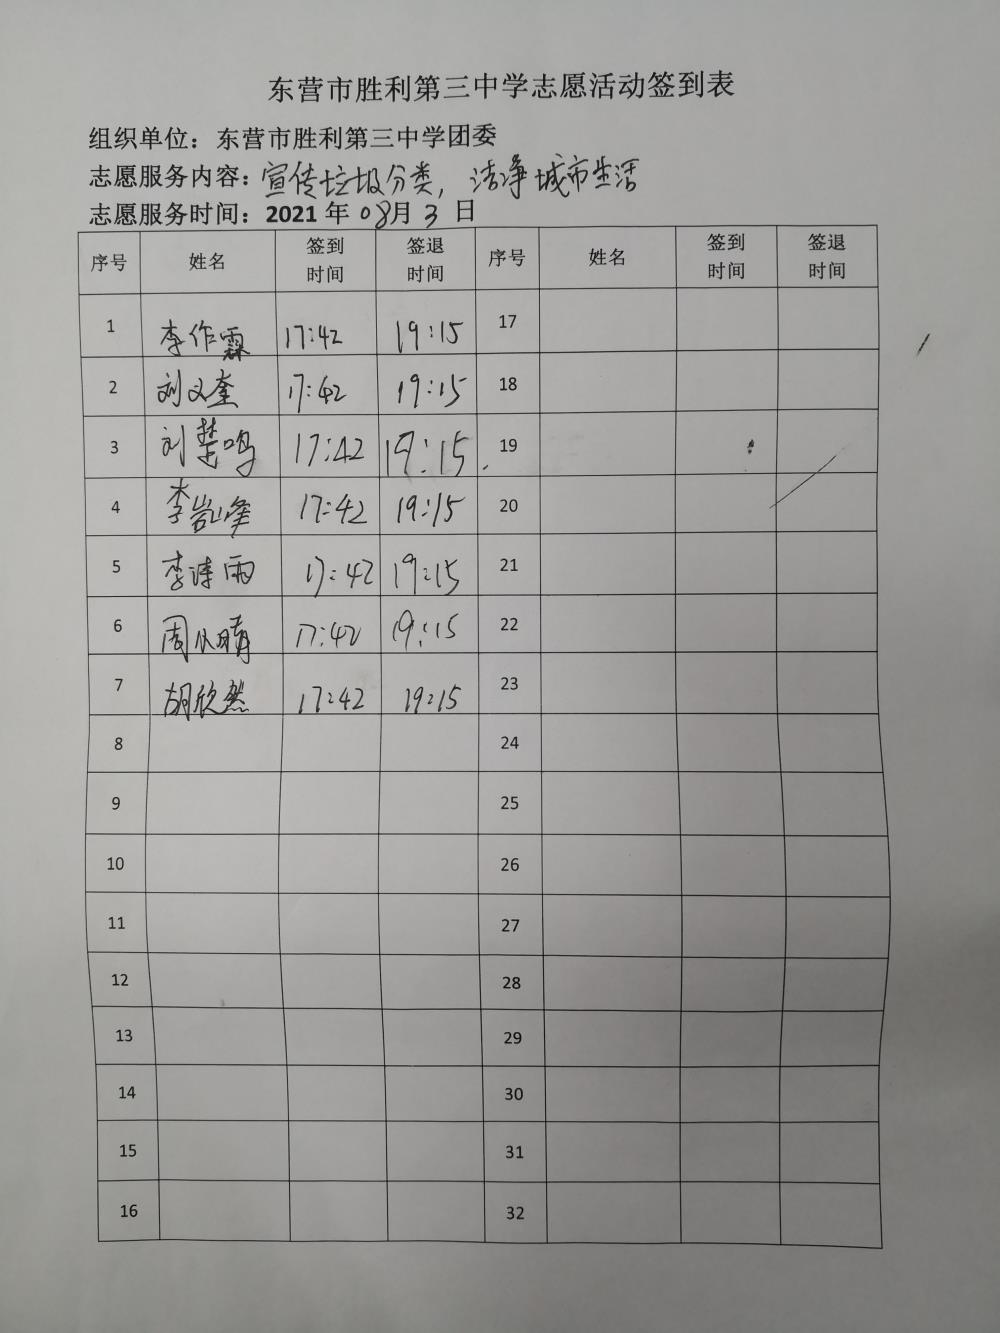 东营市胜利第三中学志愿活动签到表
组织单位：东营市胜利第三中学团委
志愿服务内容：宣传垃圾分类，洁净城市生活
志愿服务时间：2021 年 08月 3 日
序号 姓名 签到时间 签退时间 序号 姓名 签到时间 签退时间
1 李作霖 17:42 19:15 17
2 刘文奎 17:42 19:15 18
3 刘楚鸣 17:42 19:15 19
4 李岩峰 17:42 19:15 20
5 李涛雨 17:42 19:15 21
6 周 晴 17:42 19:15 22
7 胡欣然 17:42 19:15 23
8 24
9 25
10 26
11 27
12 28
13 29
14 30
15 31
16 32